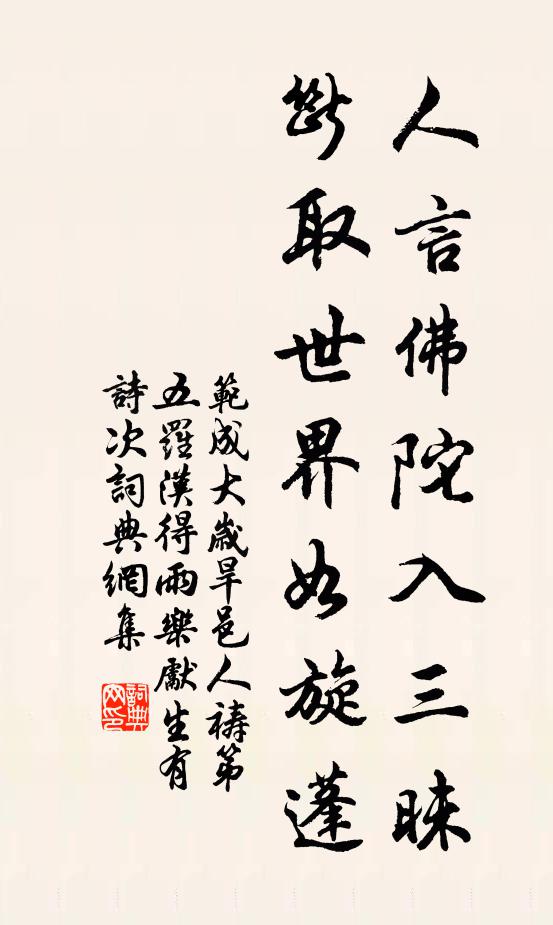 人言佛陀入三昧
斷取世界如旋蓬
範成大歲旱邑人禱第
五羅漢得雨樂獻生有
詩次詞典網集
詞典
网印